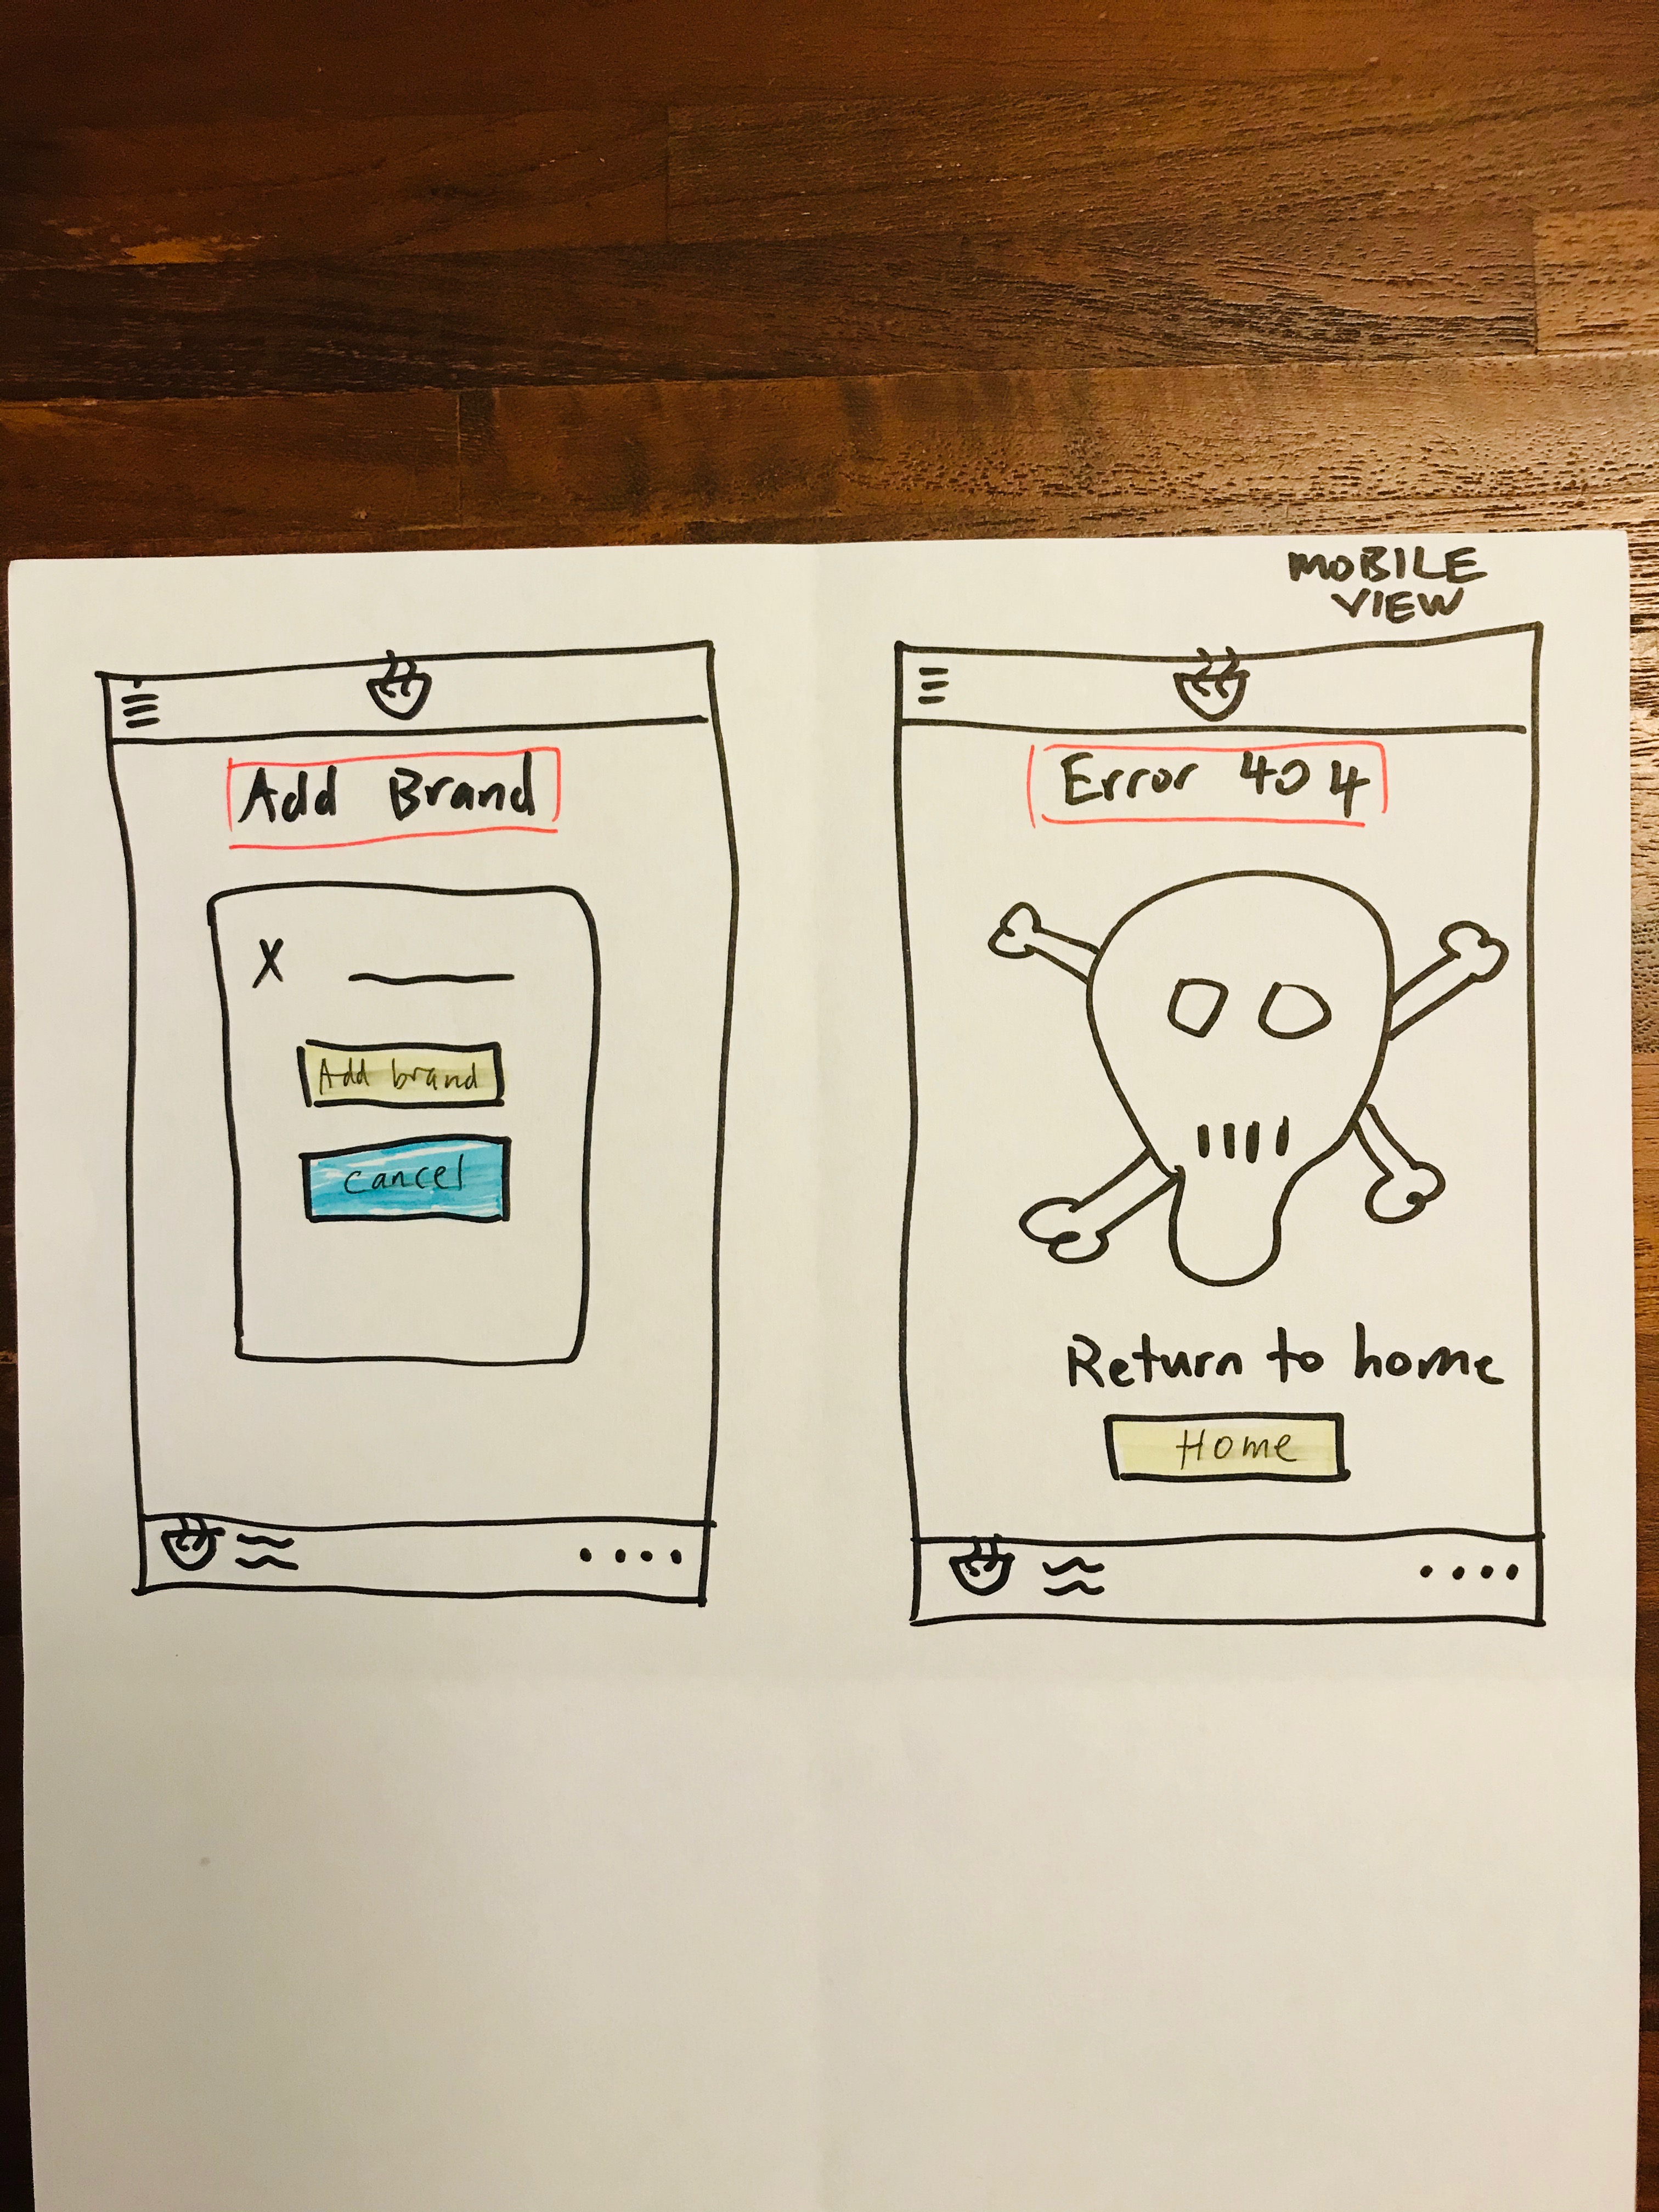 MOBILE
VIEW
Add Brand
X
Add brand
cancel
Error 404
Return to home
Home